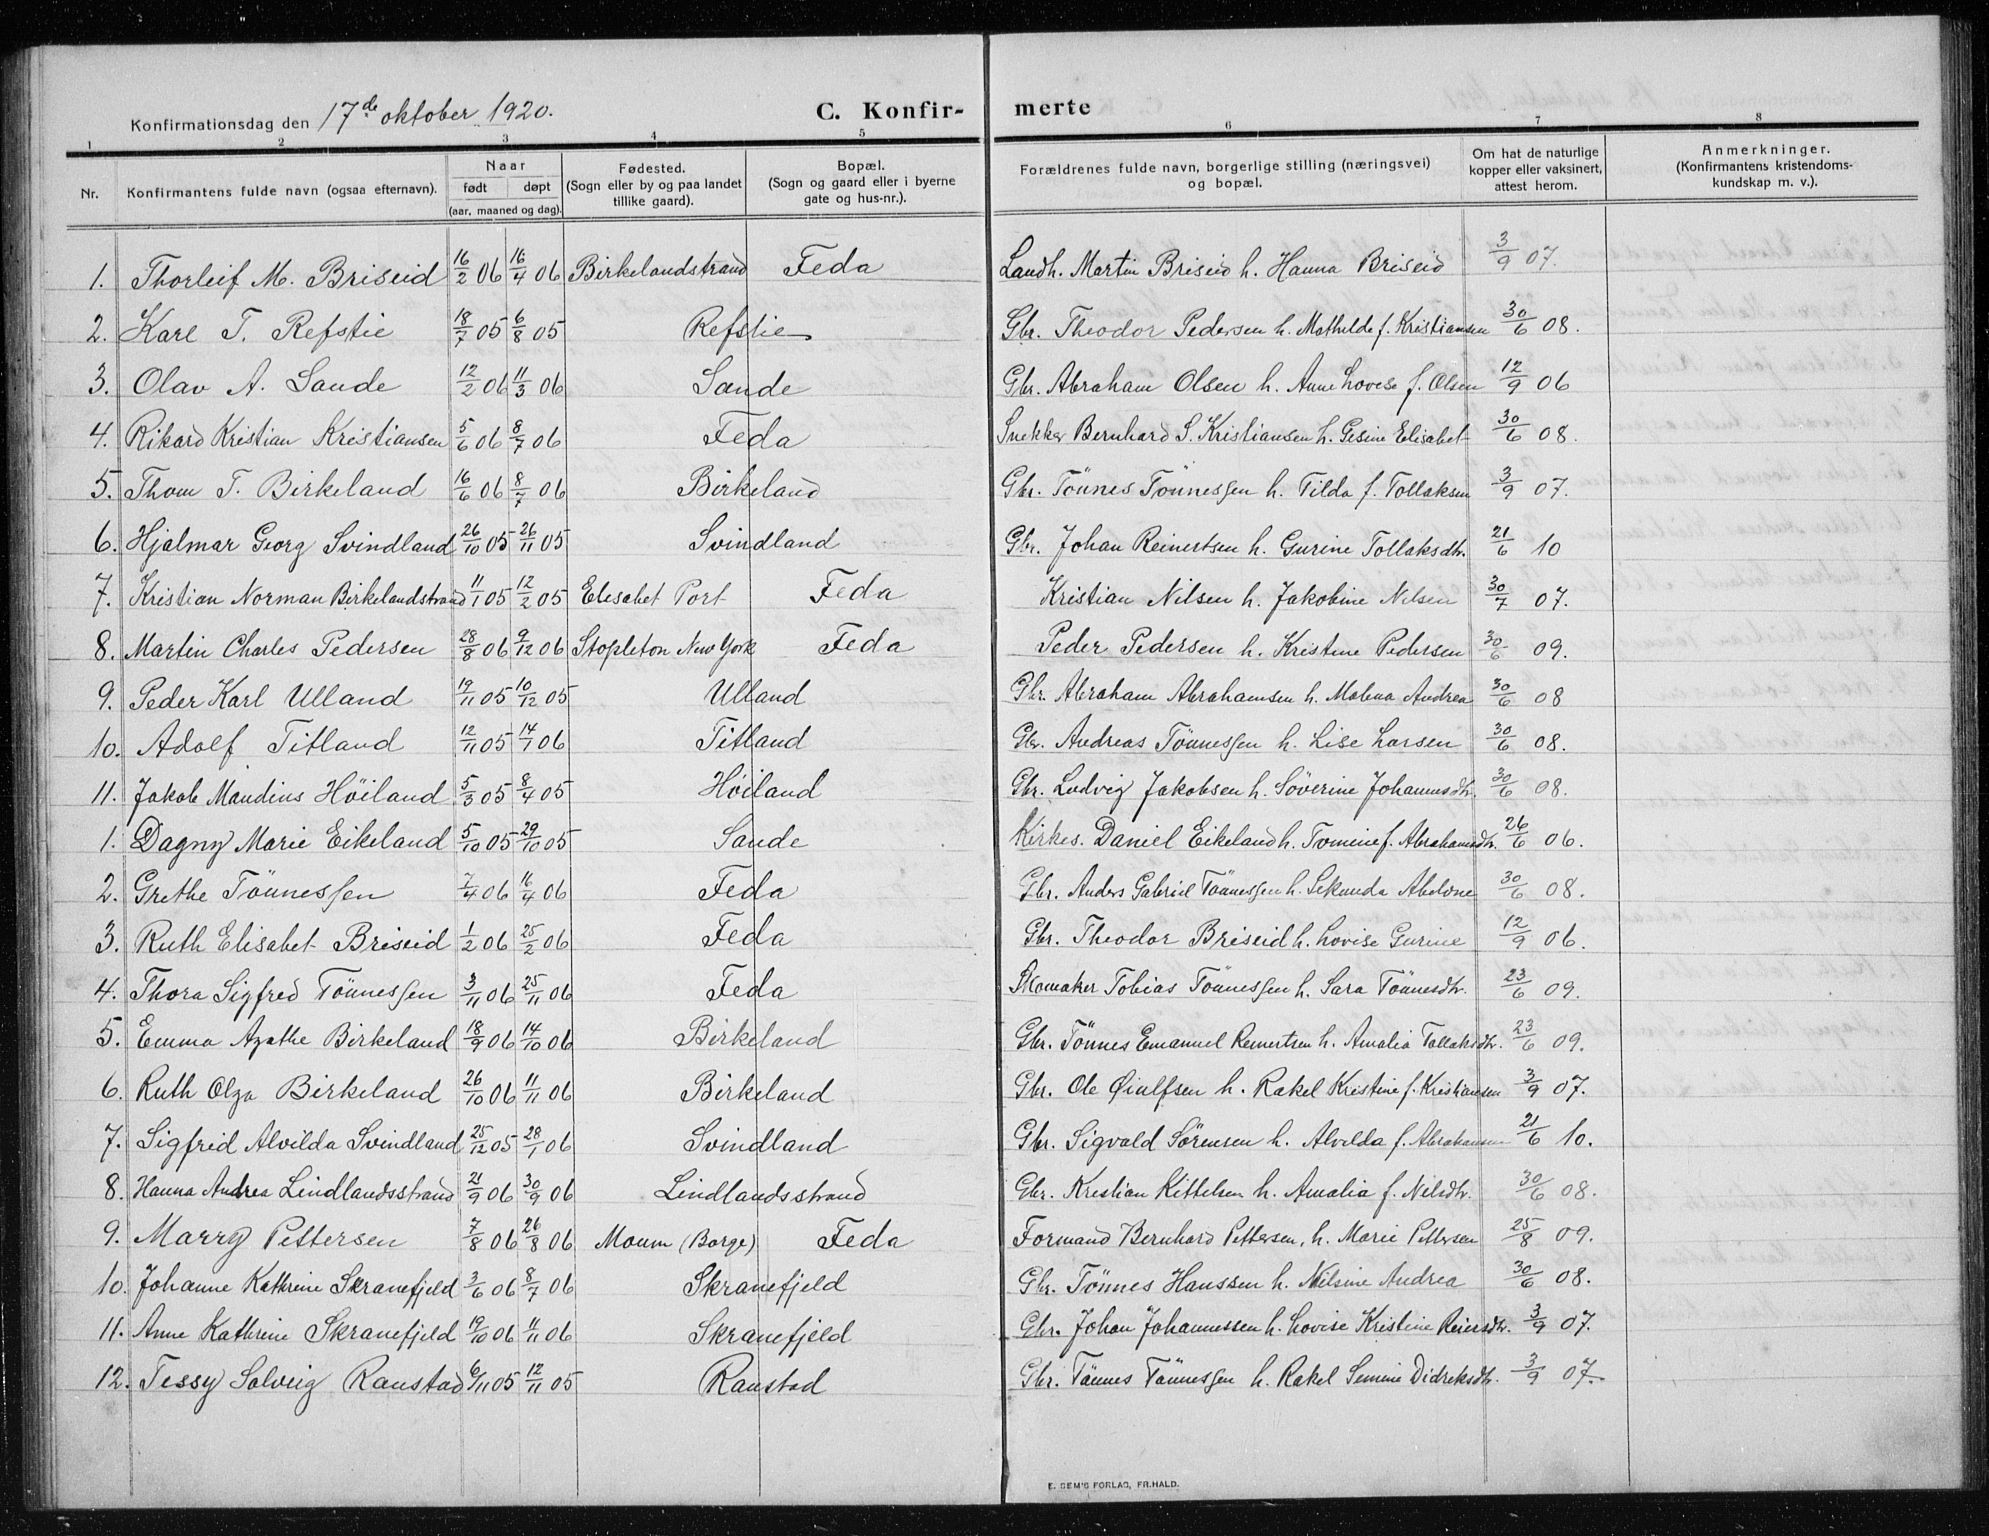 Konfirmationsdag den 17de oktober 1920. C. Konfir- merte
1 2 3 4 5 6 7 8
Nr. Konfirmantens fulde navn (ogsaa efternavn). Naar født døpt (aar, maaned og dag). Fødested. (Sogn eller by og paa landet tillike gaard). Bopæl. (Sogn og gaard eller i byerne gate og hus-nr.). Forældrenes fulde navn, borgerlige stilling (næringsvei) og bopæl. Om hat de naturlige kopper eller vaksinert, attest herom. Anmerkninger. (Konfirmantens kristendoms-kundskap m. v.).
1. Thorleif M. Briseid 16/2 06 16/4 06 Birkelandstrand Feda Landh. Martin Briseid h. Hanna Briseid 3/9 07.
2. Karl T. Refstie 18/7 05 6/8 05 Refstie Gbr. Theodor Pedersen h. Mathilde f. Kristiansen 30/6 08.
3. Olav A. Sande 12/2 06 11/3 06 Sande Gbr. Abraham Olsen h. Anne Lovise f. Olsen 12/9 06
4. Rikard Kristian Kristiansen 5/6 06 8/7 06 Feda Snekker Bernhard S. Kristiansen h. Gesine Elisabet 30/6 08.
5. Thom T. Birkeland 16/6 06 8/7 06 Birkeland Gbr. Tönnes Tönnessen h. Tilda f. Tollaksen 3/9 07.
6. Hjalmar Georg Svindland 26/10 05 26/11 05 Svindland Gbr. Johan Reinertsen h. Gurine Tollaksdtr. 21/6 10
7. Kristian Norman Birkelandstrand 11/1 05 12/2 05 Elesabet Port Feda Kristian Nilsen h. Jakobine Nilsen 30/7 07.
8. Martin Charles Pedersen 28/8 06 9/12 06 Stopleton New York Feda Peder Pedersen h. Kristine Pedersen 30/6 09.
9. Peder Karl Ulland 19/11 05 10/12 05 Ulland Gbr. Abraham Abrahamsen h. Malena Andrea 30/6 08
10. Adolf Titland 12/11 05 14/1 06 Titland Gbr. Andreas Tönnessen h. Lise Larsen 30/6 08.
11. Jakob Mandius Höiland 5/3 05 8/4 05 Höiland Gbr. Ludvig Jakobsen h. Söverine Johannesdtr. 30/6 08.
1. Dagny Marie Eikeland 5/10 05 29/10 05 Sande Kirkes. Daniel Eikeland h. Tomine f. Abrahamsdtr. 26/6 06.
2. Grethe Tönnessen 7/4 06 16/4 06 Feda Gbr. Anders Gabriel Tönnessen h. Sekunda Abelone 30/6 08.
3. Ruth Elisabet Briseid 1/2 06 25/2 06 Feda Gbr. Theodor Briseid h. Lovise Gurine 12/9 06.
4. Thora Sigfred Tönnessen 3/11 06 25/11 06 Feda Skomaker Tobias Tönnessen h. Sara Tönnesdtr. 23/6 09.
5. Emma Agathe Birkeland 18/9 06 14/10 06 Birkeland Gbr. Tönnes Emanuel Reinertsen h. Amalia Tollaksdtr. 23/6 09.
6. Ruth Olga Birkeland 26/10 06 11/11 06 Birkeland Gbr. Ole Øiulfsen h. Rakel Kristine f. Kristiansen 3/9 07.
7. Sigfrid Alvilda Svindland 25/12 05 28/1 06 Svindland Gbr. Sigvald Sörensen h. Alvilda f. Abrahamsen 21/6 10.
8. Hanna Andrea Lindlandsstrand 21/9 06 30/9 06 Lindlandsstrand Gbr. Kristian Kittelsen h. Amalia f. Nilsdtr. 30/6 08.
9. Marry Pettersen 7/8 06 26/8 06 Moum (Borge) Feda Formand Bernhard Pettersen, h. Marie Pettersen 25/8 09.
10. Johanne Kathrine Skranefjeld 3/6 06 8/7 06 Skranefjeld Gbr. Tönnes Hanssen h. Nilsine Andrea 30/6 08.
11. Anne Kathrine Skranefjeld 19/10 06 11/11 06 Skranefjeld Gbr. Johan Johannessen h. Lovise Kristine Reiersdtr. 3/9 07.
12. Tessy Solveig Ranstad 6/11 05 12/11 05 Ranstad Gbr. Tönnes Tönnessen h. Rakel Semine Didreksdtr. 3/9 07.
E. SEM'S FORLAG, FR.HALD.